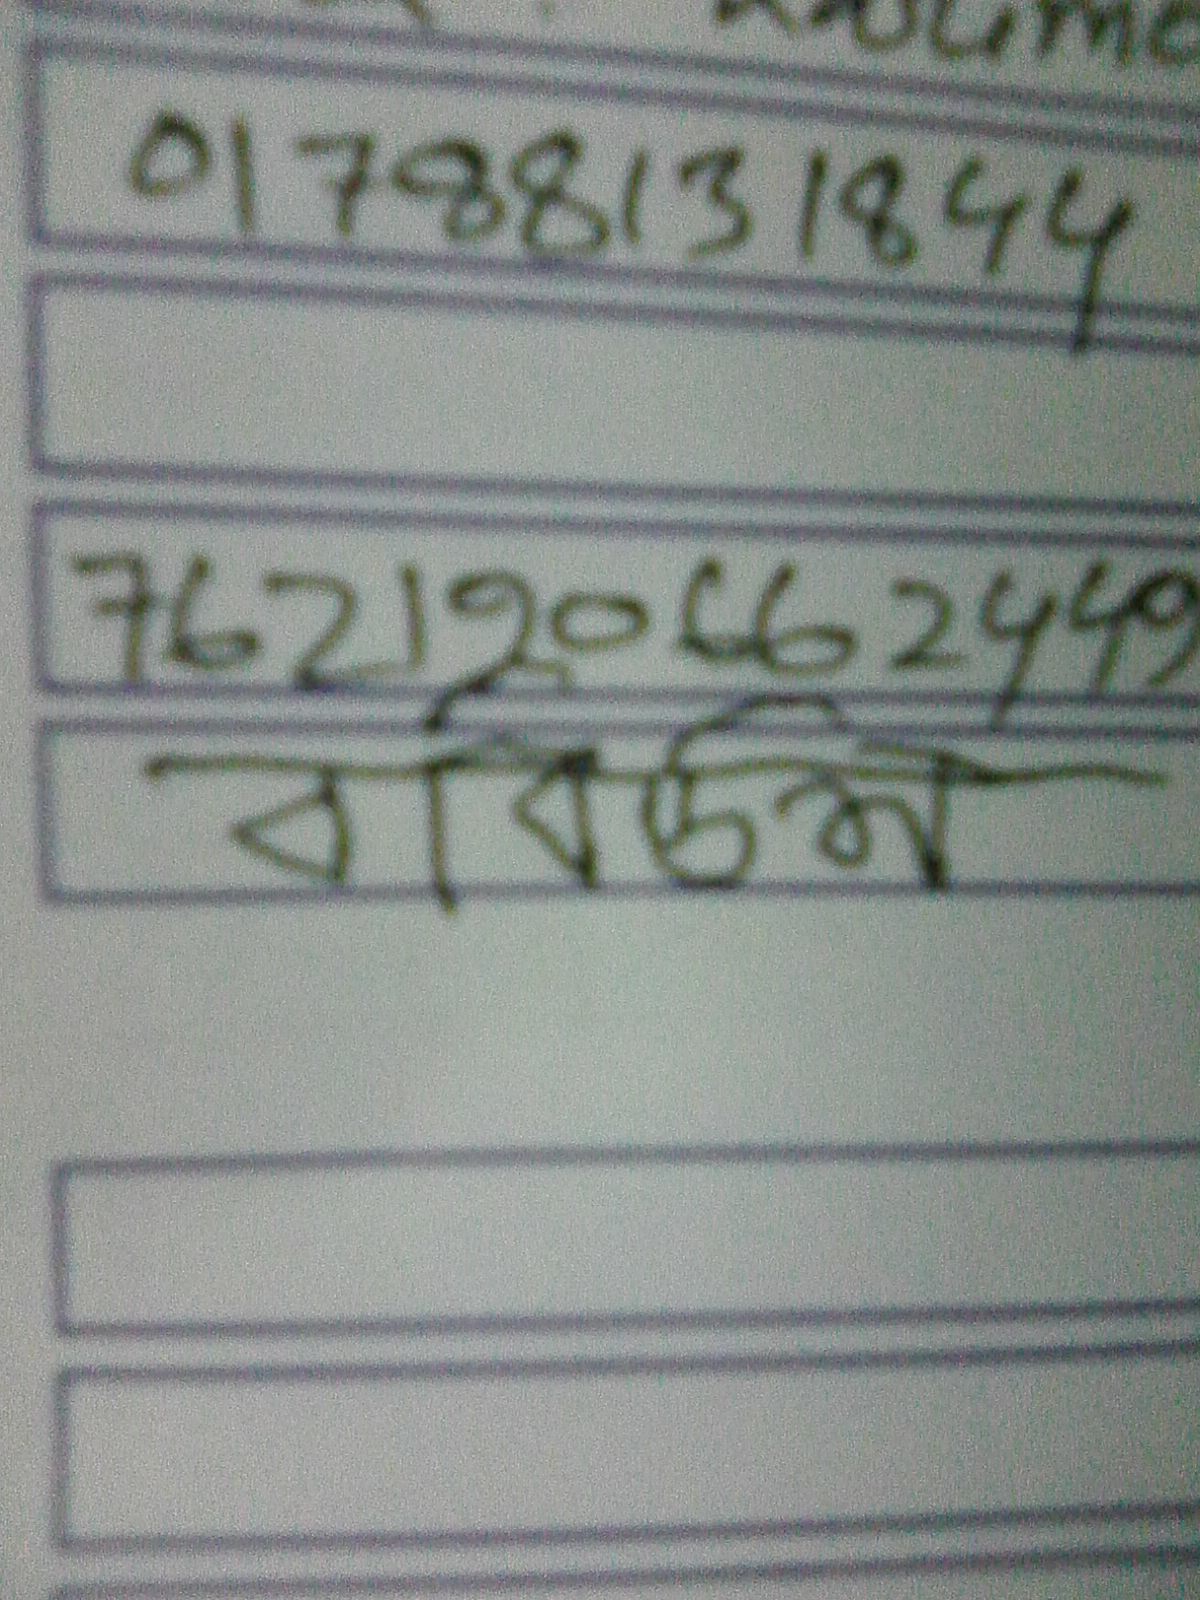 01788131844
762120662449
বাবিউল